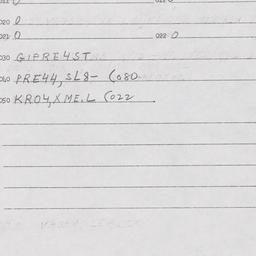 020 0
021 0 022 0
030 GIPRE4ST
040 PRE44, SL8- C080
050 KR04, XME.L C022